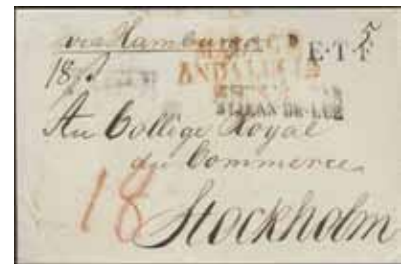 via Hamburgo
E·T·F
ANDALUCIA
ST JEAN-DE-LUZ
Au Collège Royal
du Commerce
18
Stockholm